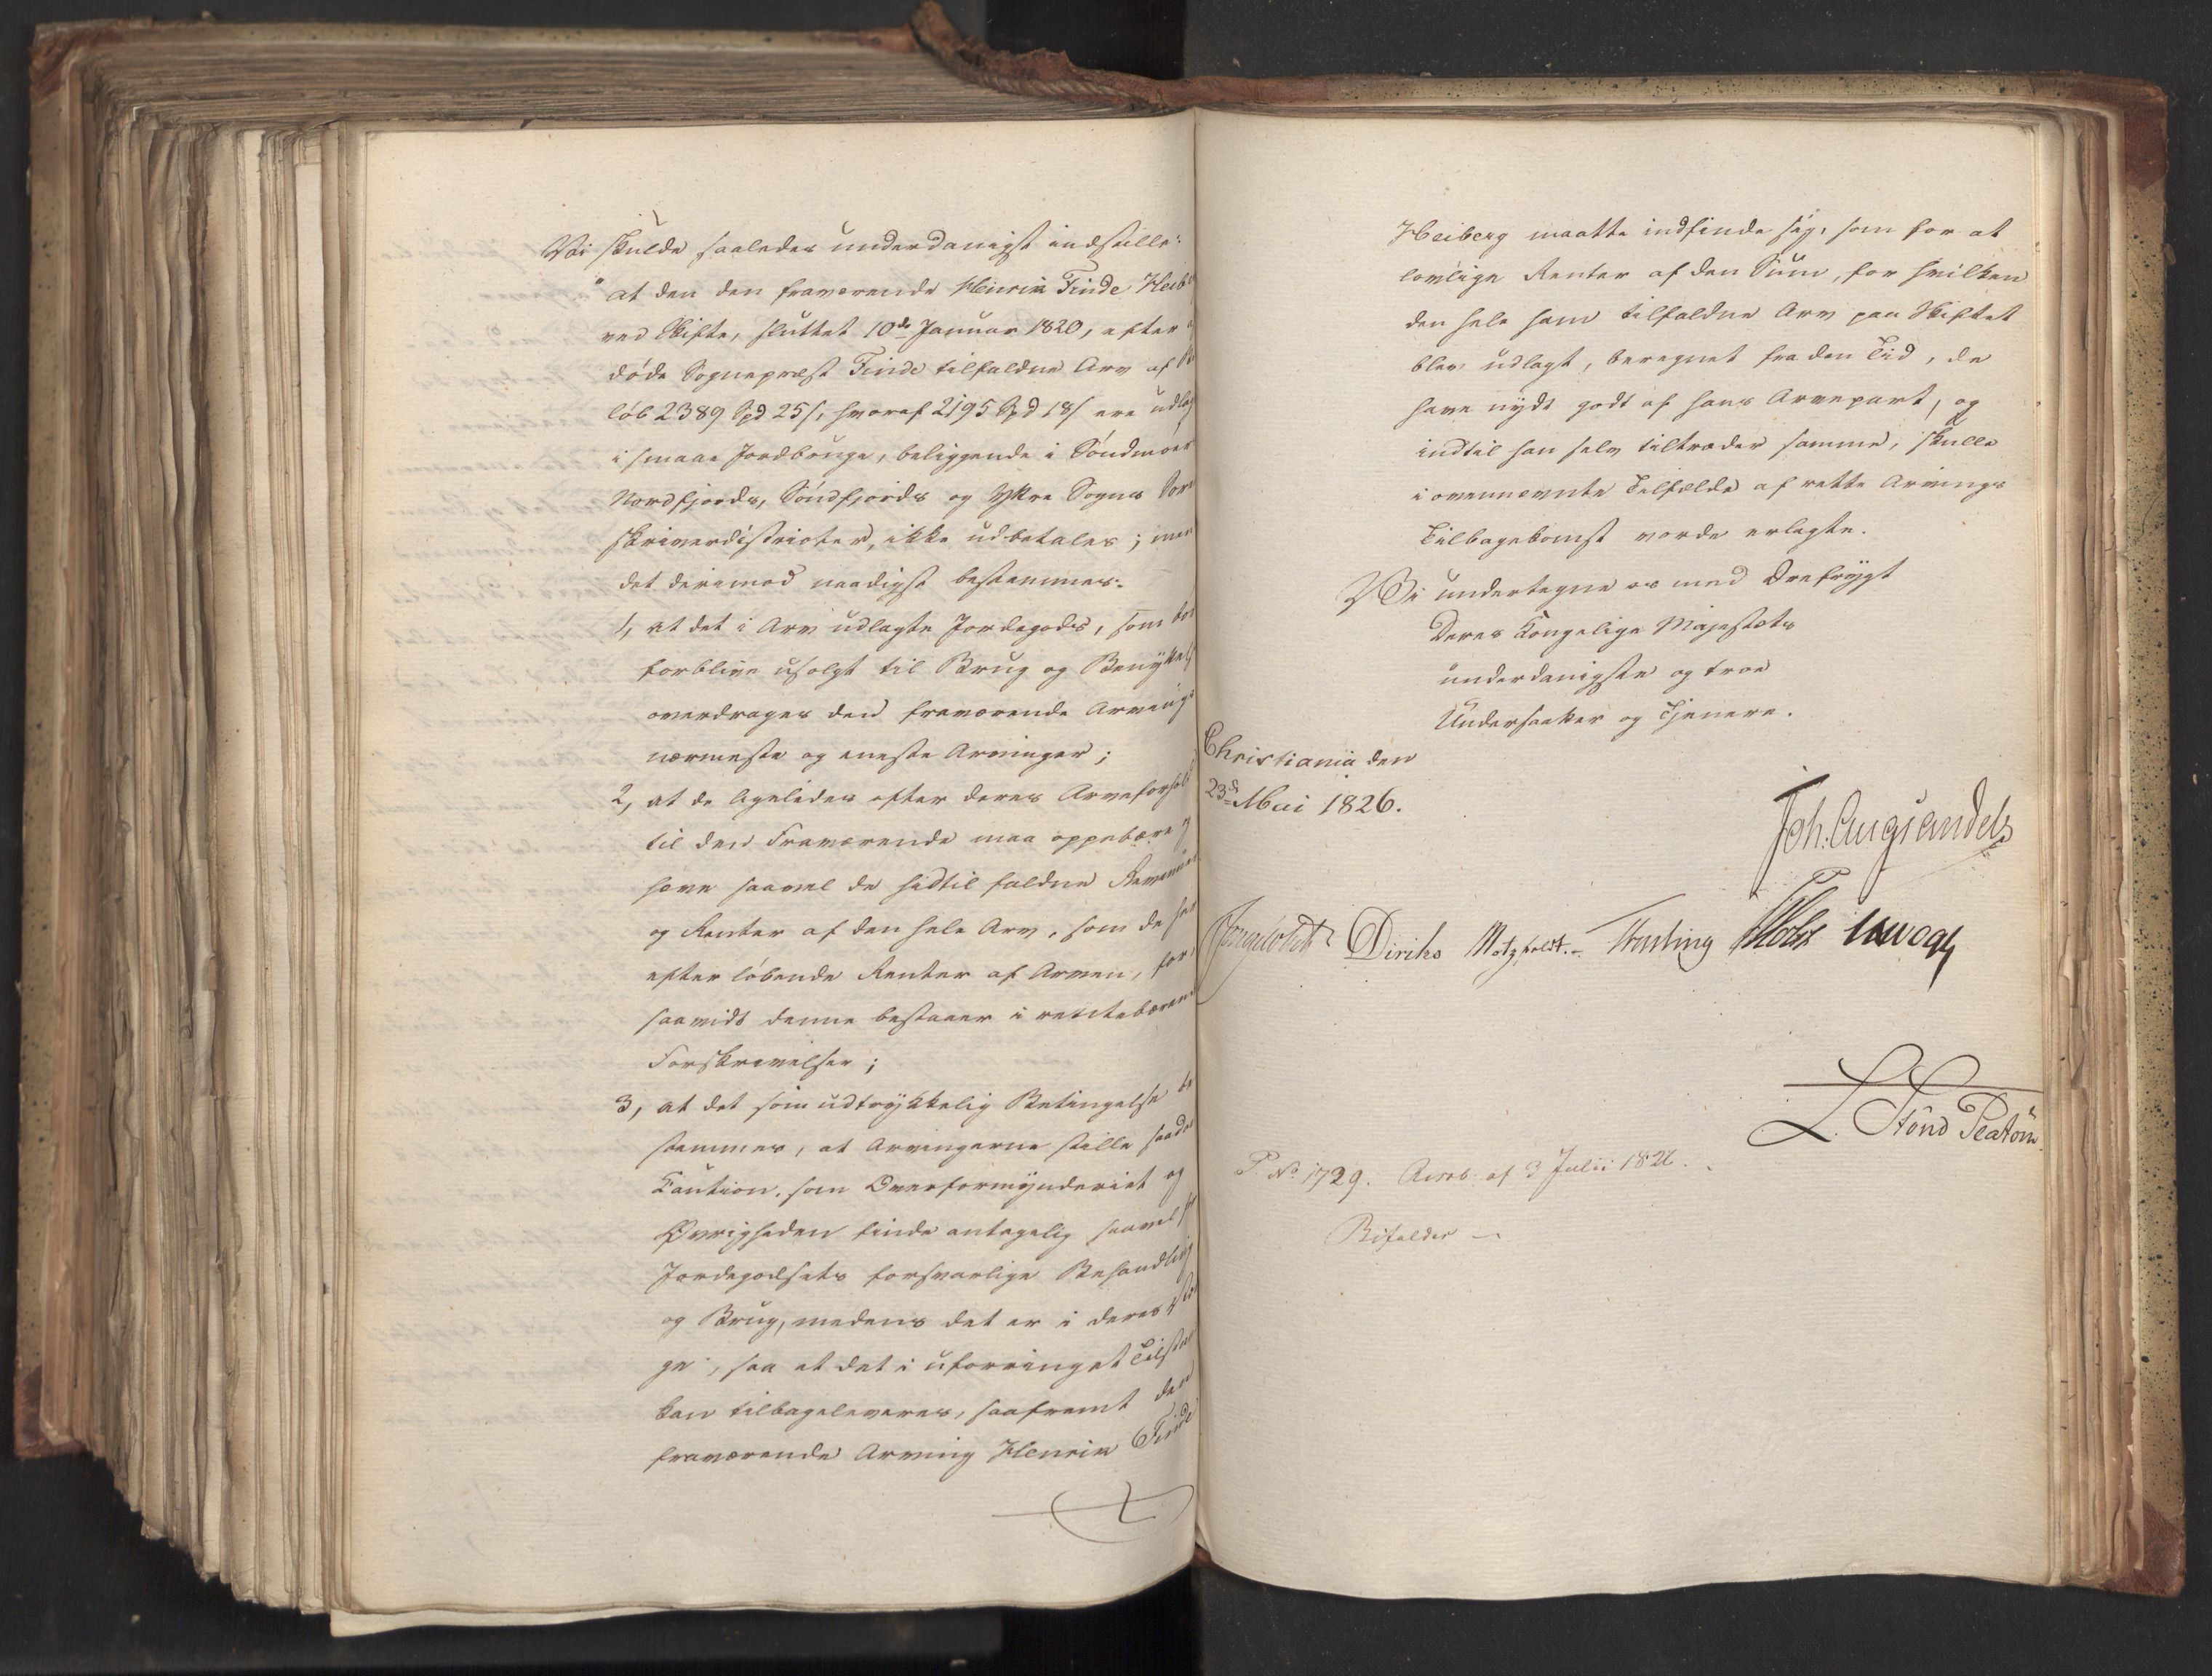 Vi skulde saaledes underdanigst indstille:
"at den den fraværende Henrik Finde Heib
ved Skifte, sluttet 10de Januar 1820, efter
døde Sognepræst Finde tilfaldne Arv af
løb 2389 Spd 25 s, hvoraf 2195 Spd 18 s ere udlag
i smaae Jordbruge, beliggende i Söndmörs
Nordfjords, Söndfjords og Yttre Sogns Sore
skriverdistricter, ikke udbetales; men
det derimod naadigst bestemmes:
1, at det i Arv udlagte Jordegods, som bör
forblive usolgt til Brug og Benyttelse
overdrages den fraværende Arvings
nærmeste og eneste Arvinger;
2, at de ligeledes efter deres Arveforhold
til den Fraværende maa oppebære og
hæve saavel de hidtil faldne Revenüer
og Renter af den hele Arv, som de her
efter løbende Renter af Arven, for
saavidt denne bestaaer i rentebærende
Forskrivelser;
3, at det som udtrykkelig Betingelse be
stemmes, at Arvingerne stille saadan
Caution, som Overformynderiet og
Øvrigheden finde antagelig saavel for
Jordegodsets forsvarlige Behandling
og Brug, medens det er i deres
ge, saa at det i uforringet Tilstand
kan tilbageleveres, saafremt den
fraværende Arving Henrik Finde
Heiberg maatte indfinde sig, som for at
lovlige Renter af den Sum, for hvilken
den hele ham tilfaldne Arv paa Skiftet
blev udlagt, beregnet fra den Tid, de
have nydt godt af hans Arvepart, og
indtil han selv tiltræder samme, skulle
i ovennævnte Tilfælde af rette Arvings
Tilbagekomst vorde erlagte.
Vi undertegne os med Ærefrygt
Deres Kongelige Majestæts
underdanigste og troe
Undersaatter og Tjenere.
Christiania den
23de Mai 1826.
Joh. Aug. Sandels
Diriks Motzfeldt. Treschow Holst
P. No 1729. Resol. af 3 Julii 1826.
Bifaldes